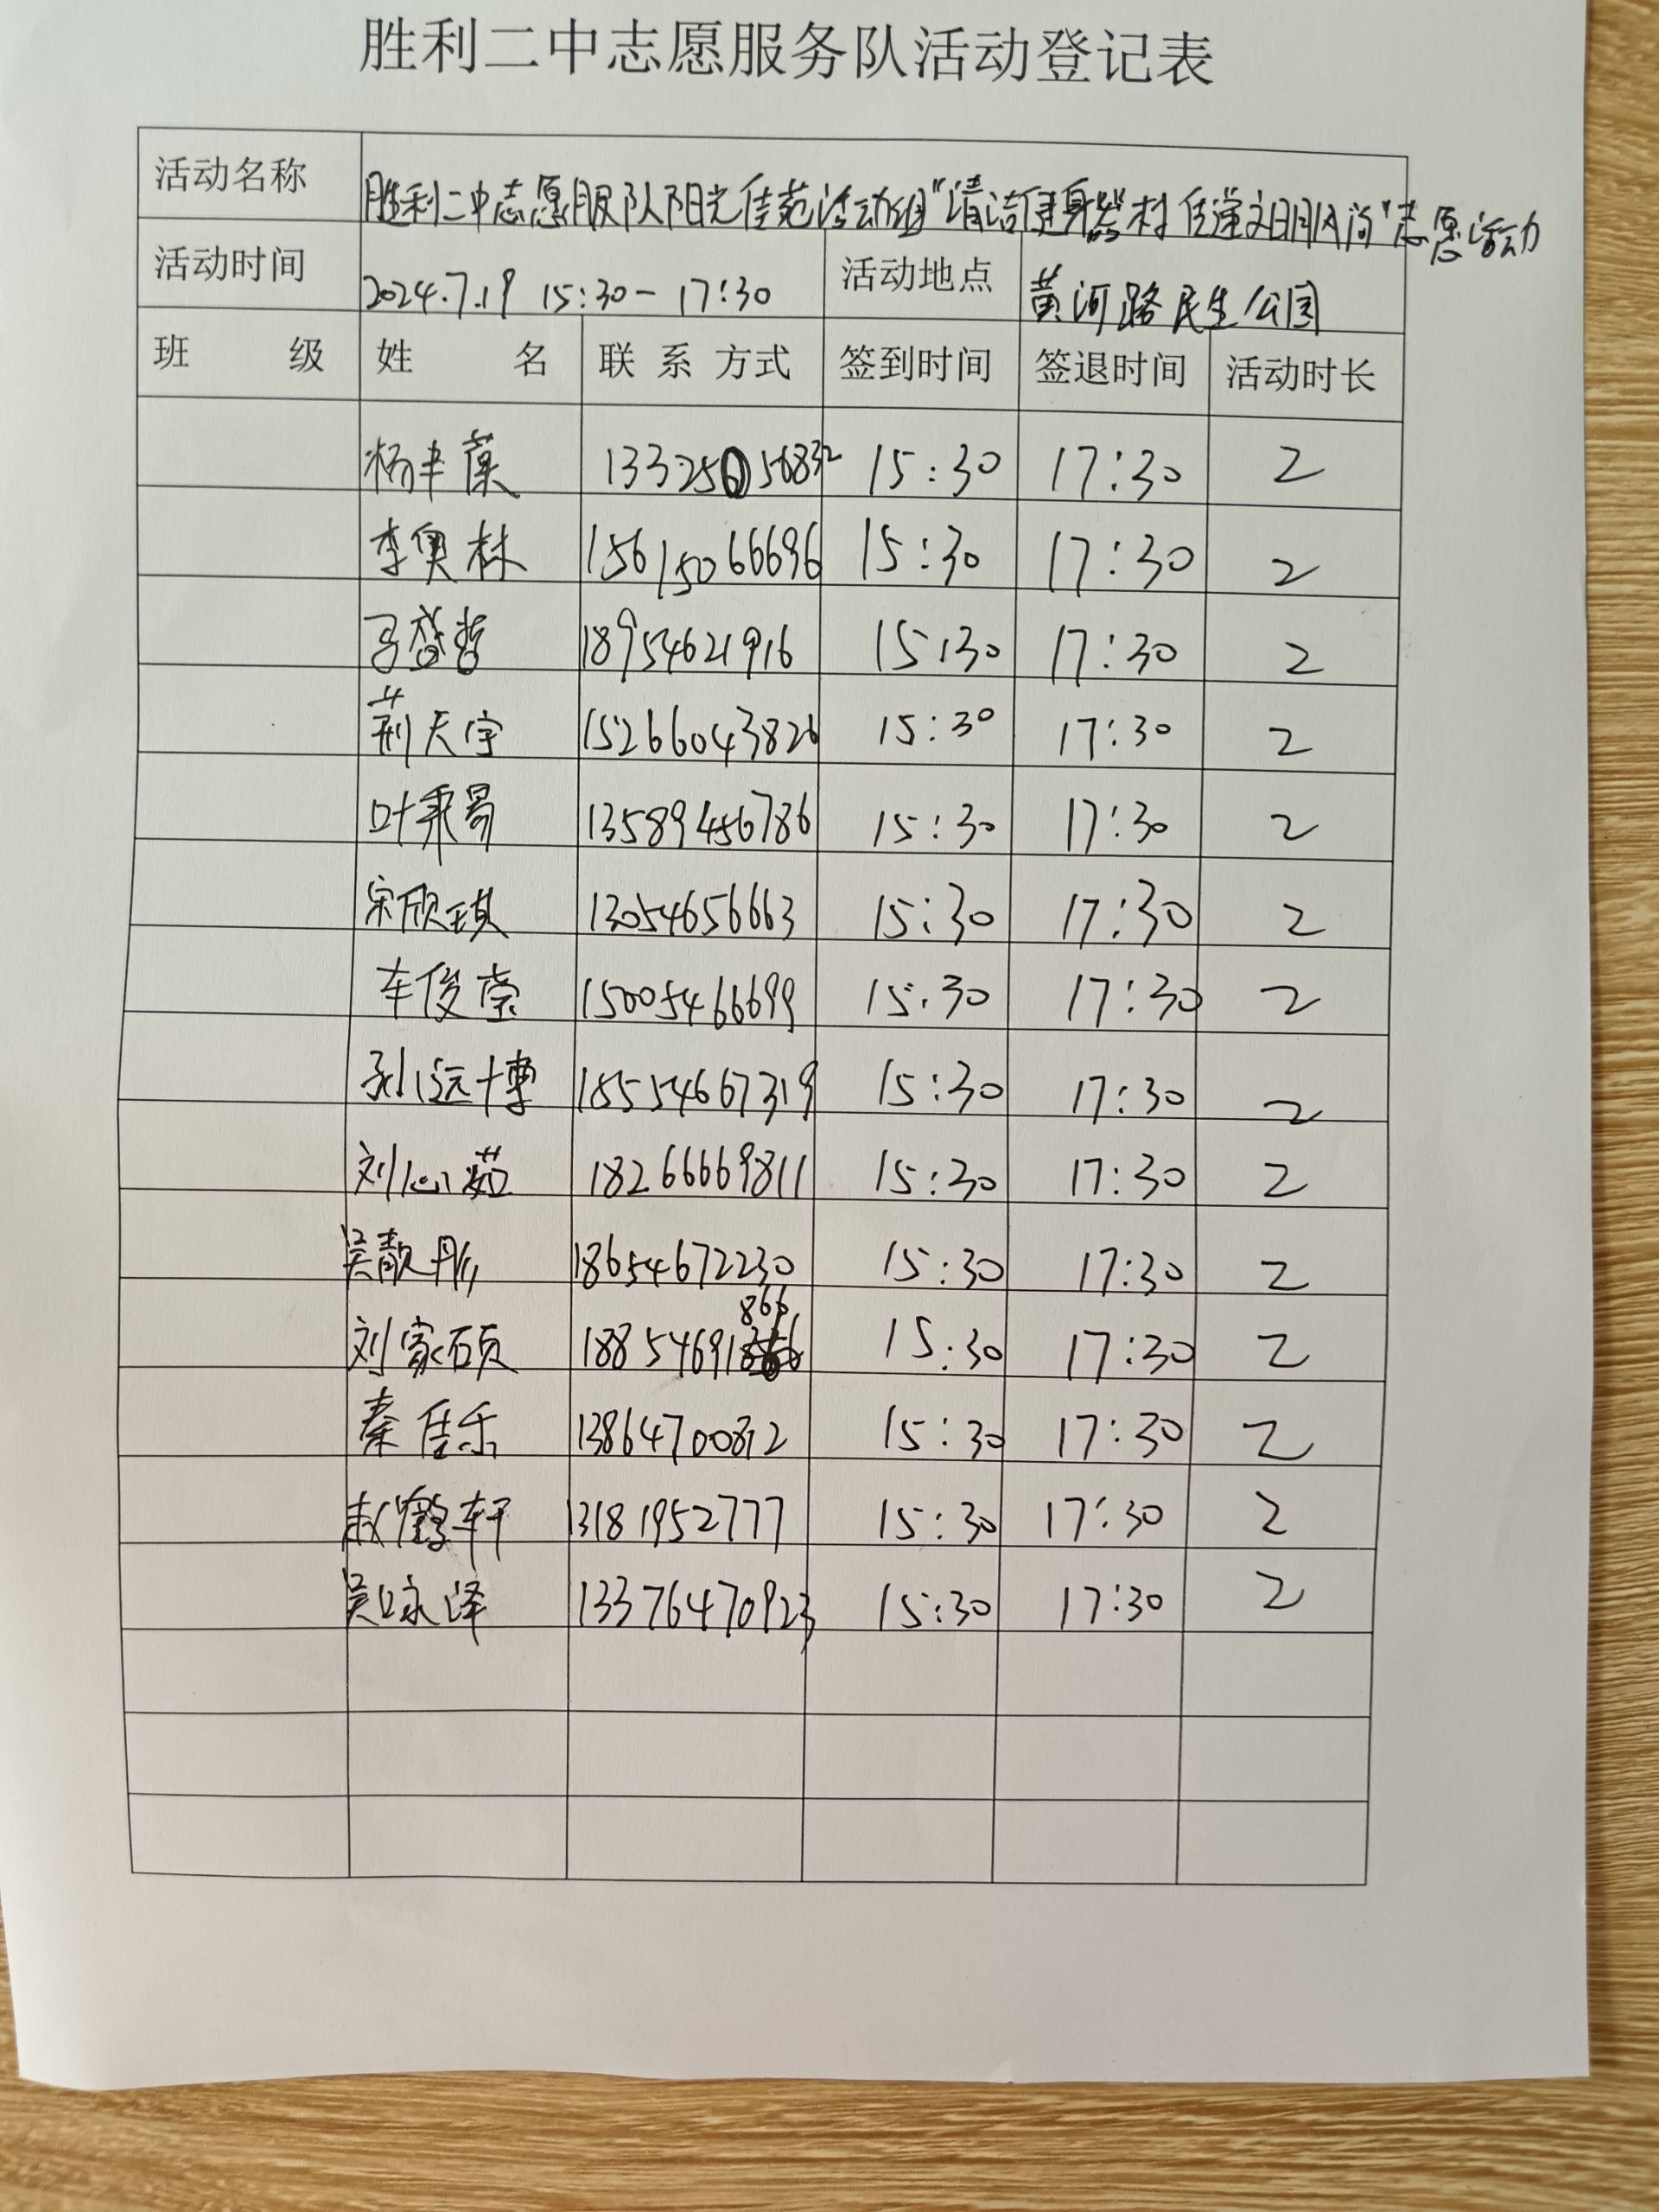 胜利二中志愿服务队活动登记表
活动名称 胜利二中志愿服队阳光佳苑活动组"清洁健身器材 传递文明风尚"志愿活动
活动时间 2024.7.19 15:30-17:30 活动地点 黄河路民生公园
班 级 姓 名 联系方式 签到时间 签退时间 活动时长
杨丰 15:30 17:30 2
李奥林 15615066696 15:30 17:30 2
马盛哲 18954621916 15:30 17:30 2
荆天宇 15266043826 15:30 17:30 2
叶秉易 13589456786 15:30 17:30 2
宋欣琪 13054656663 15:30 17:30 2
车俊莹 15005466699 15:30 17:30 2
孙远博 18554667319 15:30 17:30 2
刘心茹 18266669811 15:30 17:30 2
吴靓彤 18654672230 15:30 17:30 2
刘家硕 18854691866 15:30 17:30 2
秦佳乐 13864700812 15:30 17:30 2
赵鹤轩 13181952777 15:30 17:30 2
吴咏泽 13376470923 15:30 17:30 2